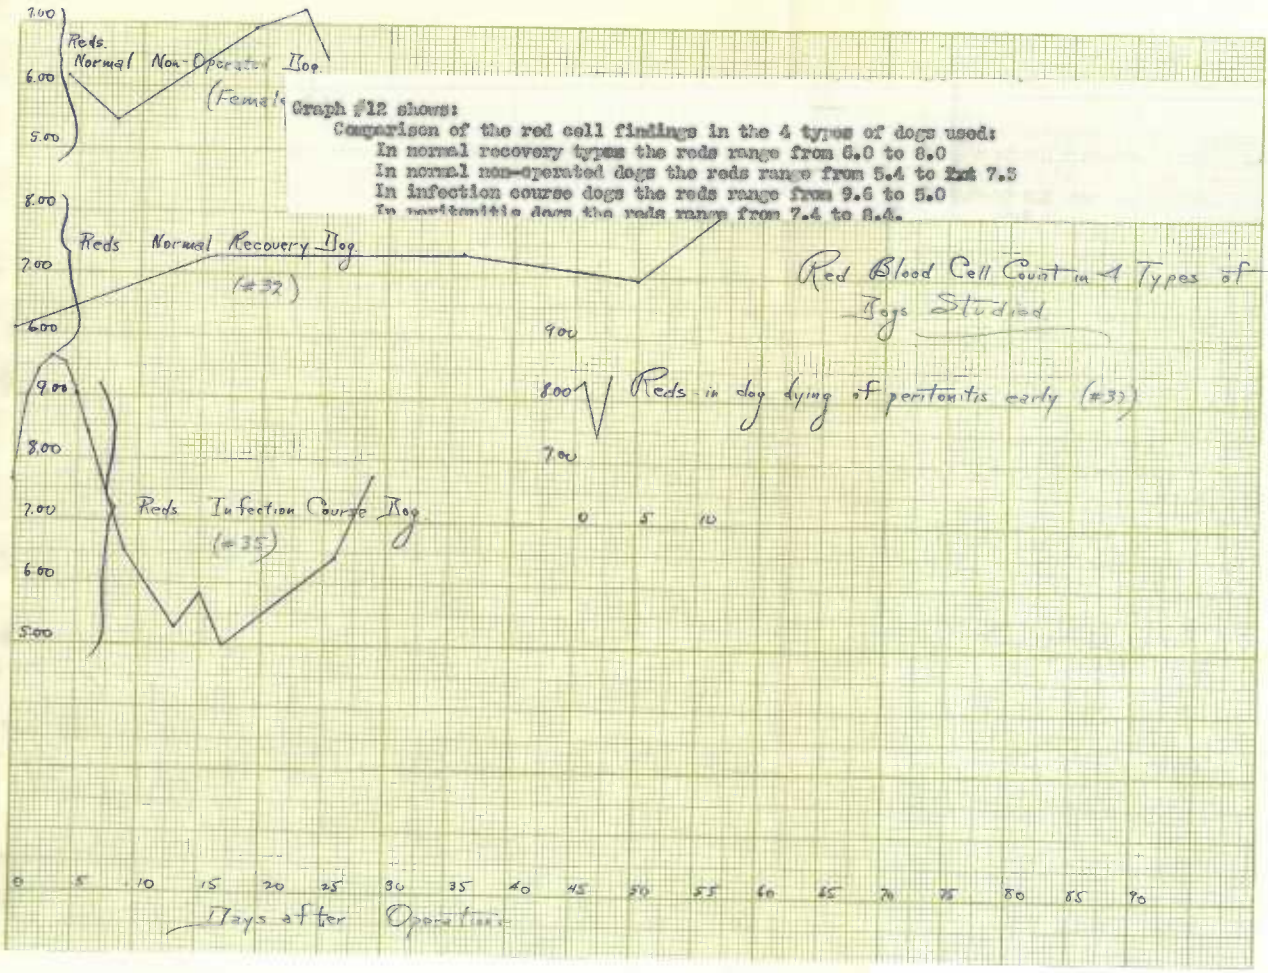 7.00
Reds.
Normal Non-Operated Dog.
6.00
(Female
5.00
Graph #12 shows:
Comparison of the red cell findings in the 4 types of dogs used:
In normal recovery types the reds range from 6.0 to 8.0
In normal non-operated dogs the reds range from 5.4 to 7.3
In infection course dogs the reds range from 9.6 to 5.0
In peritonitis dogs the reds range from 7.4 to 8.4.
8.00
Reds Normal Recovery Dog.
7.00
(#32)
6.00
Red Blood Cell Count in 4 Types of
Dogs Studied
9.00
8.00
7.00
6.00
5.00
Reds Infection Course Dog.
(#35)
9.00
8.00 Reds in dog dying of peritonitis early (#37)
7.00
0 5 10
0 5 10 15 20 25 30 35 40 45 50 55 60 65 70 75 80 85 90
Days after Operation.